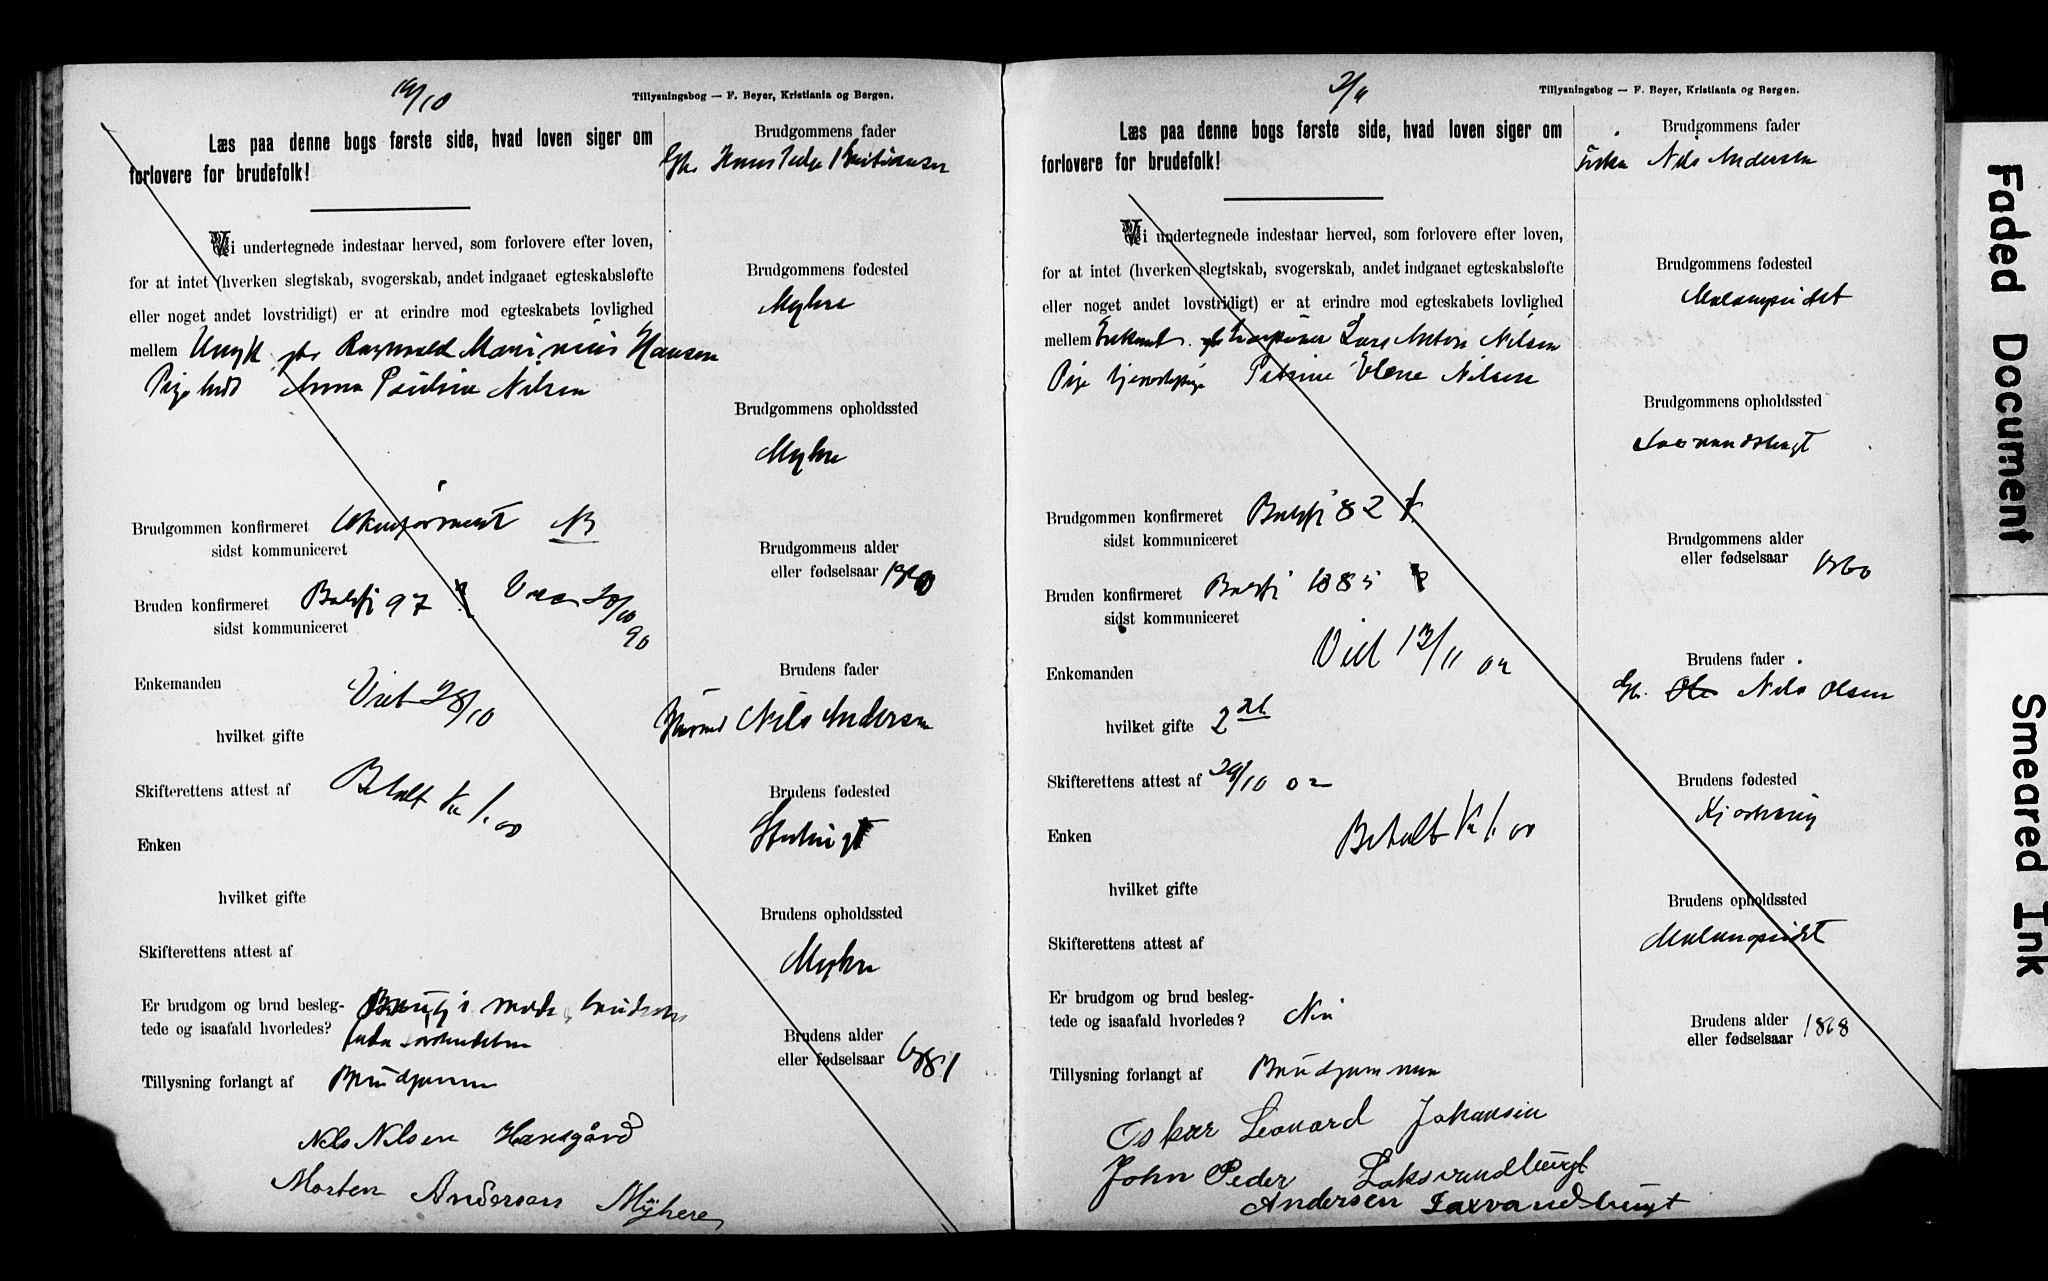 19/10
Tillysningsbog — F. Beyer, Kristiania og Bergen.
Læs paa denne bogs første side, hvad loven siger om
forlovere for brudefolk!
Vi undertegnede indestaar herved, som forlovere efter loven,
for at intet (hverken slegtskab, svogerskab, andet indgaaet egteskabsløfte
eller noget andet lovstridigt) er at erindre mod egteskabets lovlighed
mellem Ungk gbr Ragnvald Marinius Hansen
Pige Anna Pauline Nilsen
Brudgommen konfirmeret Ukonfirmert NB
sidst kommuniceret
Bruden konfirmeret Balsfj 97
sidst kommuniceret
Enkemanden
Viet 28/10
hvilket gifte
Skifterettens attest af
Betalt Kr 1.00
Enken
hvilket gifte
Skifterettens attest af
Er brudgom og brud besleg-
tede og isaafald hvorledes?
Tillysning forlangt af Brudgommen
Nils Nilsen Hansgård
Morten Andersen Myhere
Brudgommens fader
Gbr Hans Peder Kristiansen
Brudgommens fødested
Myhre
Brudgommens opholdssted
Myhre
Brudgommens alder
eller fødselsaar
Brudens fader
Nils Andersen
Brudens fødested
Brudens opholdssted
Myhre
Brudens alder
eller fødselsaar 1881
2/11
Tillysningsbog — F. Beyer, Kristiania og Bergen.
Læs paa denne bogs første side, hvad loven siger om
forlovere for brudefolk!
Vi undertegnede indestaar herved, som forlovere efter loven,
for at intet (hverken slegtskab, svogerskab, andet indgaaet egteskabsløfte
eller noget andet lovstridigt) er at erindre mod egteskabets lovlighed
mellem Enkemd. Lars Anton Nilsen
Pige tjenestepige Petrine Elene Nilsen
Brudgommen konfirmeret Balsfj 82
sidst kommuniceret
Bruden konfirmeret Balsfj 1885
sidst kommuniceret
Viet 13/11 02
Enkemanden
hvilket gifte 2det
Skifterettens attest af 29/10 02
Enken
Betalt Kr 1.00
hvilket gifte
Skifterettens attest af
Er brudgom og brud besleg-
tede og isaafald hvorledes? Nei
Tillysning forlangt af Brudgommen
Oskar Leonard Johansen
John Peder Laksvandbugt
Andersen Laxvandbugt
Brudgommens fader
Fisker Nils Andersen
Brudgommens fødested
Malangseidet
Brudgommens opholdssted
Laxvandbugt
Brudgommens alder
eller fødselsaar 1860
Brudens fader
Gbr. Ole Nils Olsen
Brudens fødested
Brudens opholdssted
Malangseidet
Brudens alder
eller fødselsaar 1868
Faded Document
Smeared Ink